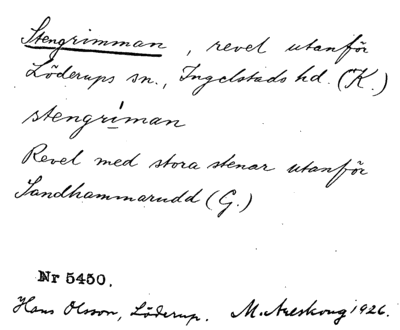 Stengrimman, revel utanför
Löderups sn., Ingelstads hd. (K.)
stengrìman
Revel med stora stenar utanför
Sandhammarudd (G.)
Nr 5450.
Hans Olsson, Löderup. M. Areskoug 1926.